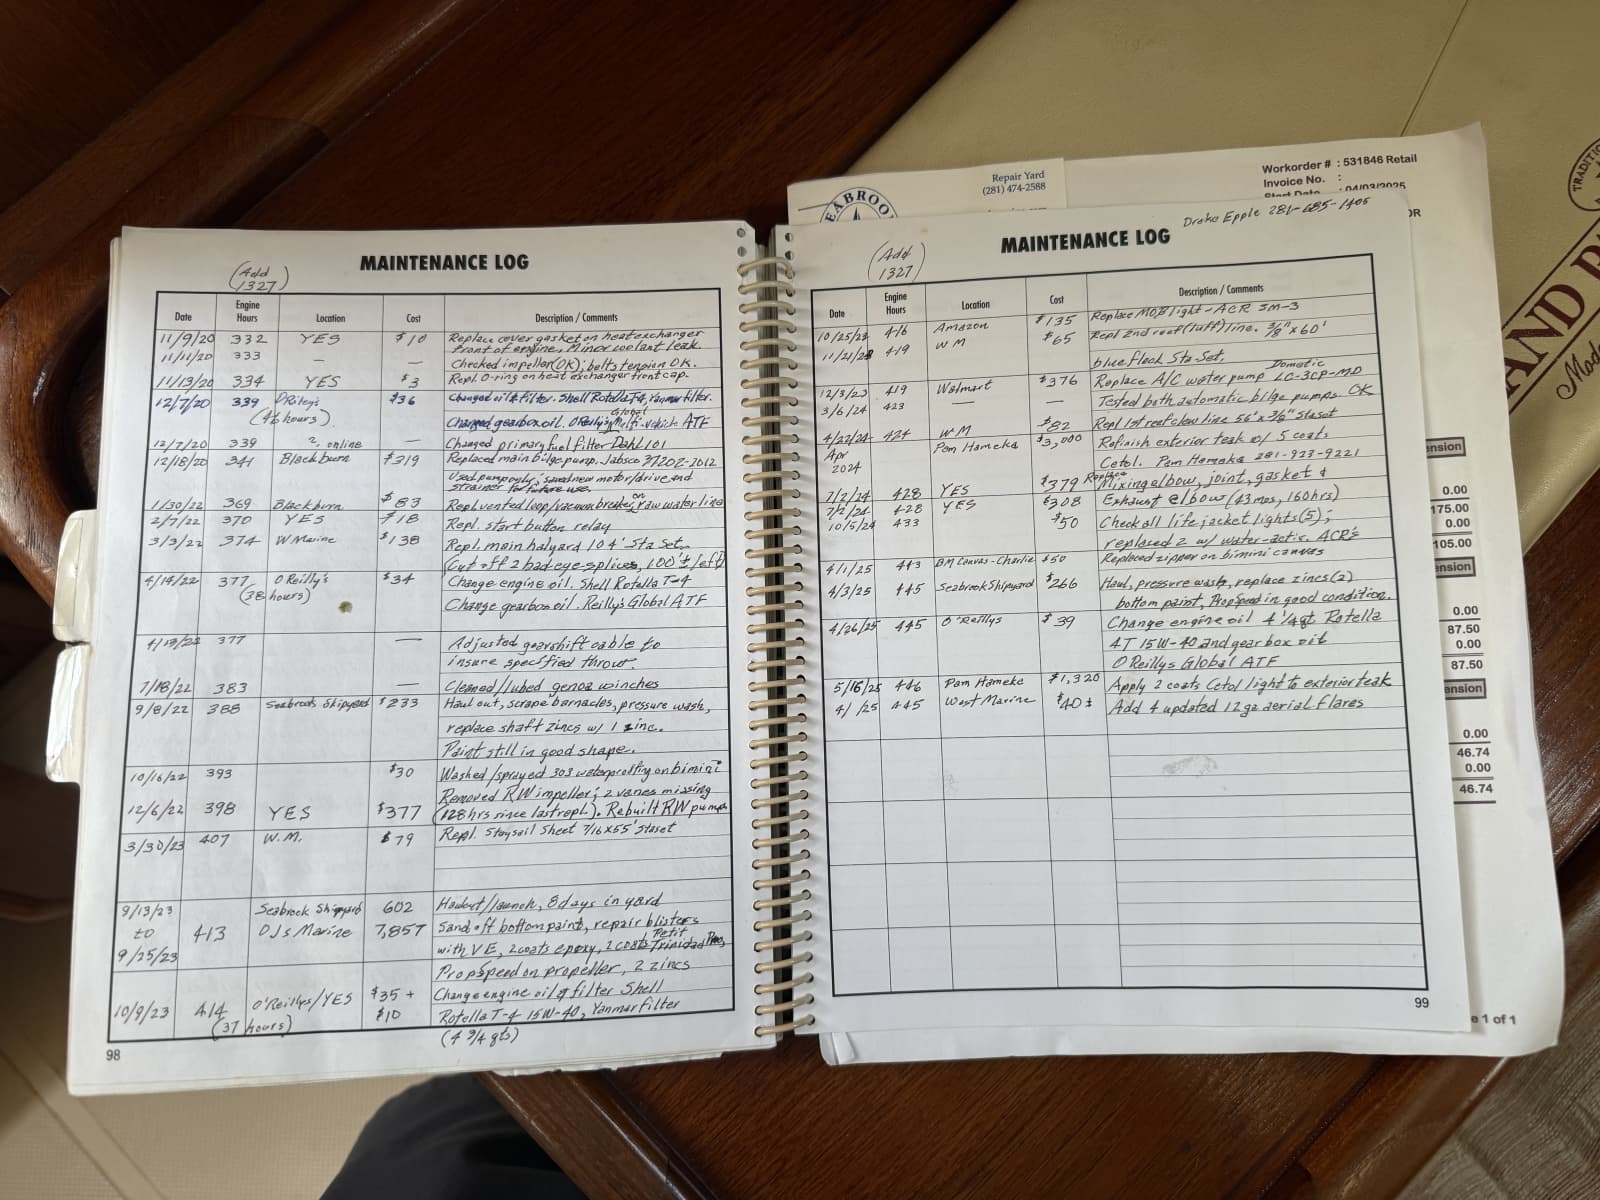 Repair Yard
(281) 474-2588
Workorder # : 531846 Retail
Invoice No. :
Start Date : 04/03/2025
TRADITION
AND
EABROO
OR
Drake Epple 281-685-1405
MAINTENANCE LOG
(Add 1327)
Date Engine Hours Location Cost Description / Comments
11/9/20 332 YES $10 Replace cover gasket on heat exchanger
front of engine, Minor coolant leak.
11/11/20 333 — — Checked impeller (OK); belts tension OK.
11/13/20 334 YES $3 Repl. O-ring on heat exchanger front cap.
12/7/20 339 O'Riley's $36 Changed oil & filter. Shell Rotella T4, Yanmar filter.
(46 hours) Changed gearbox oil. O'Reilly's Global Multi-vehicle ATF
12/7/20 339 ?, online — Changed primary fuel filter Dahl 101
12/18/20 341 Blackburn $319 Replaced main bilge pump. Jabsco 37202-2012
Used pump only; saved new motor/drive and
strainer for future use.
1/30/22 369 Blackburn $83 Repl. vented loop/vacuum breaker on raw water line
2/7/22 370 YES $18 Repl. start button relay
3/3/22 374 W Marine $138 Repl. main halyard 104' Sta Set.
(Cut off 2 bad eye-splices, 100'± left)
4/14/22 377 O Reilly's $34 Change engine oil. Shell Rotella T-4
(38 hours) Change gearbox oil. Reilly's Global ATF
4/19/22 377 — Adjusted gearshift cable to
insure specified throw.
7/18/22 383 — Cleaned/lubed genoa winches
9/8/22 388 Seabrook Shipyard $233 Haul out, scrape barnacles, pressure wash,
replace shaft zincs w/ 1 zinc.
Paint still in good shape.
10/16/22 393 $30 Washed/sprayed 303 waterproofing on bimini
Removed RW impeller; 2 vanes missing
12/6/22 398 YES $377 (128 hrs since last repl.). Rebuilt RW pump
3/30/23 407 W.M. $79 Repl. Staysail Sheet 7/16 x 55' Staset
9/13/23 Seabrook Shipyard 602 Haulout/launch, 8 days in yard
to 413 DJs Marine 7,857 Sand off bottom paint, repair blisters
9/25/23 with VE, 2 coats epoxy, 2 coats Petit Trinidad Pro,
PropSpeed on propeller, 2 zincs
10/9/23 414 O'Reillys/YES $35 + Change engine oil & filter Shell
(37 hours) $10 Rotella T-4 15W-40, Yanmar filter
(4 3/4 qts)
98
MAINTENANCE LOG
(Add 1327)
Date Engine Hours Location Cost Description / Comments
10/25/23 416 Amazon $135 Replace MOB light - ACR SM-3
11/21/23 419 WM $65 Repl 2nd reef (luff) line. 3/8" x 60'
blue fleck Sta-Set.
12/3/23 419 Walmart $376 Replace A/C water pump Dometic LC-3CP-MD
3/6/24 423 — — Tested both automatic bilge pumps. OK
4/22/24 424 WM $82 Repl 1st reef clew line 56' x 3/8" Staset
Apr 2024 Pam Hameka $3,000 Refinish exterior teak w/ 5 coats
Cetol. Pam Hameka 281-923-9221
7/2/24 428 YES $379 Replace Mixing elbow, joint, gasket &
7/2/24 428 YES $308 Exhaust elbow (43 mos, 160 hrs)
10/5/24 433 $50 Check all life jacket lights (5);
replaced 2 w/ water-activ. ACR's
4/1/25 443 BM Canvas - Charlie $50 Replaced zipper on bimini canvas
4/3/25 445 Seabrook Shipyard $266 Haul, pressure wash, replace zincs (2)
bottom paint, PropSpeed in good condition.
4/26/25 445 O'Reillys $39 Change engine oil 4 1/4 qt Rotella
4T 15W-40 and gearbox oil
O'Reillys Global ATF
5/16/25 446 Pam Hameka $1,320 Apply 2 coats Cetol light to exterior teak
4/ /25 445 West Marine $40± Add 4 updated 12 ga aerial flares
99
ension
0.00
175.00
0.00
105.00
ension
0.00
87.50
0.00
87.50
ension
0.00
46.74
0.00
46.74
e 1 of 1